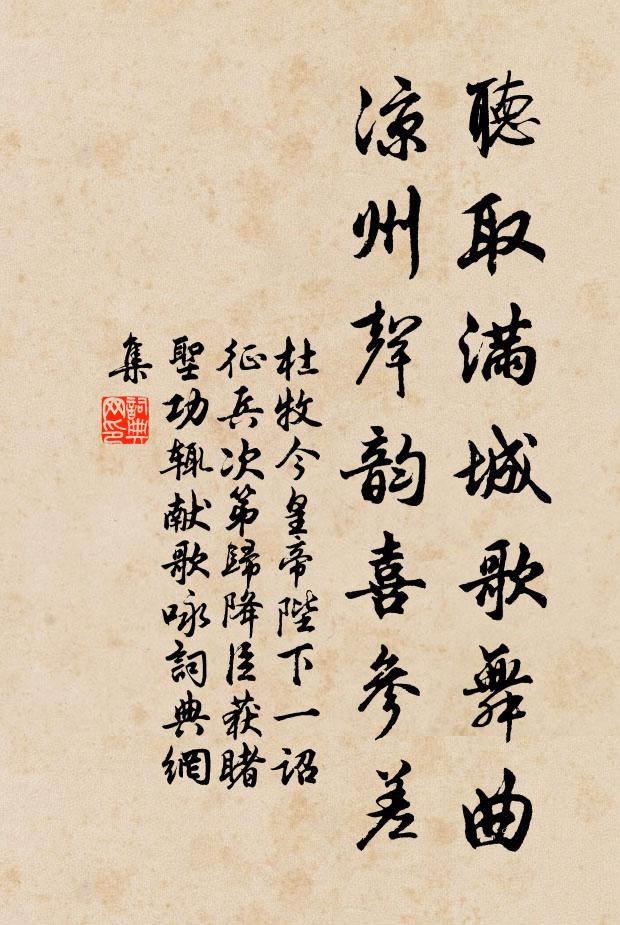 聽取滿城歌舞曲
涼州聲韵喜參差
杜牧今皇帝陛下一詔
征兵次第歸降臣获睹
聖功辄献歌咏詞典網
集
詞典網印